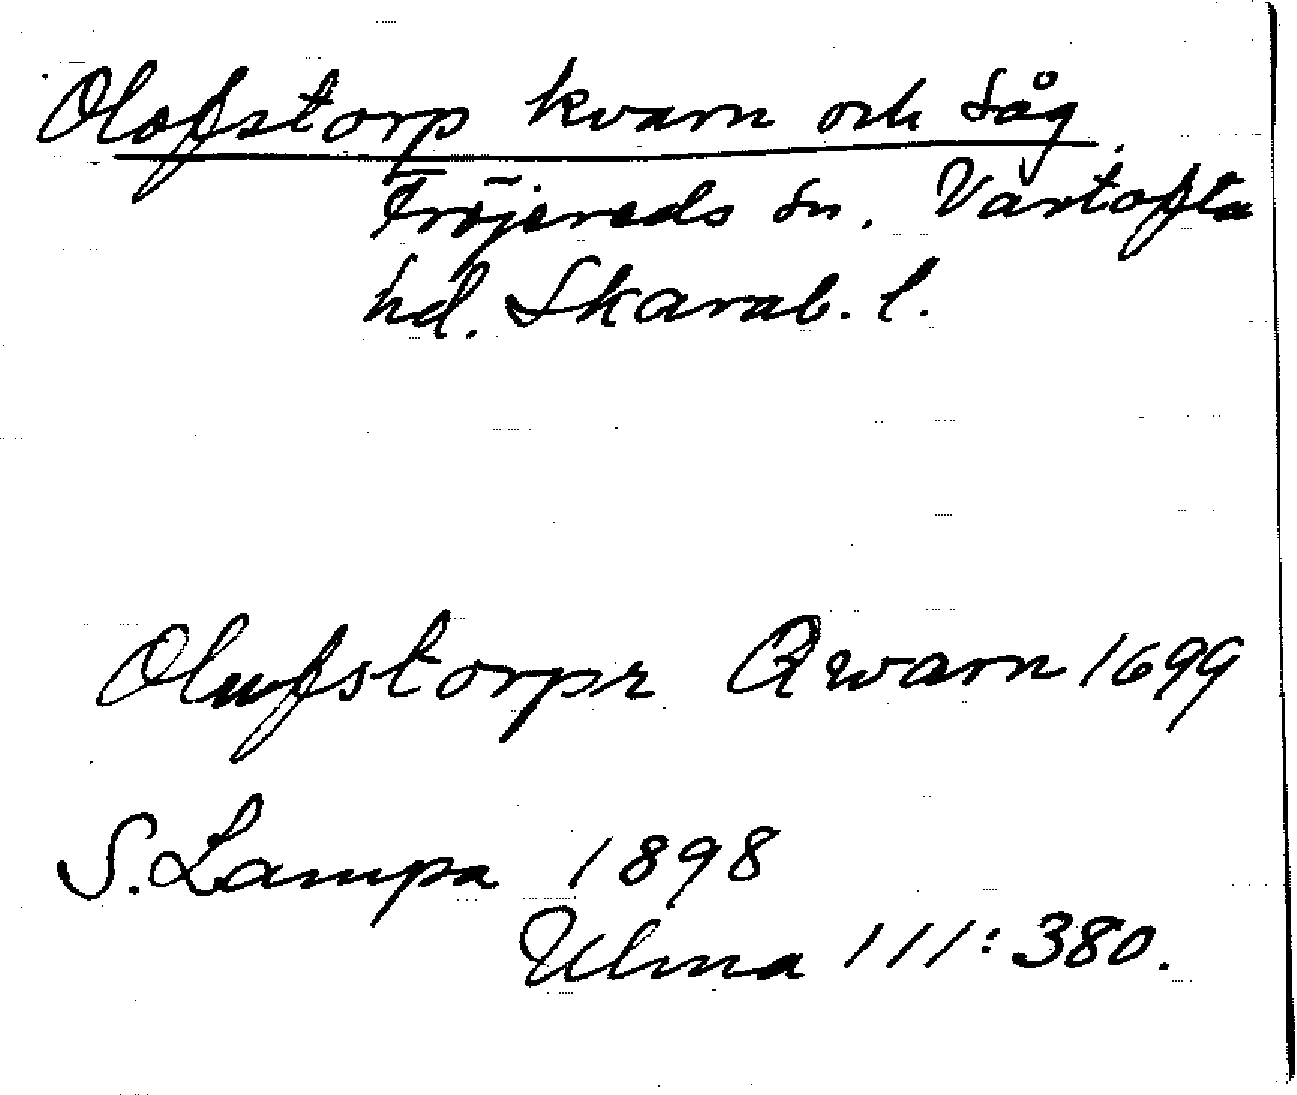 Olofstorp kvarn och såg.
Fröjereds sn. Vartofta
hd. Skarab. l.
Olufstorps Qwarn 1699
S. Lampa 1898
Ulma 111:380.